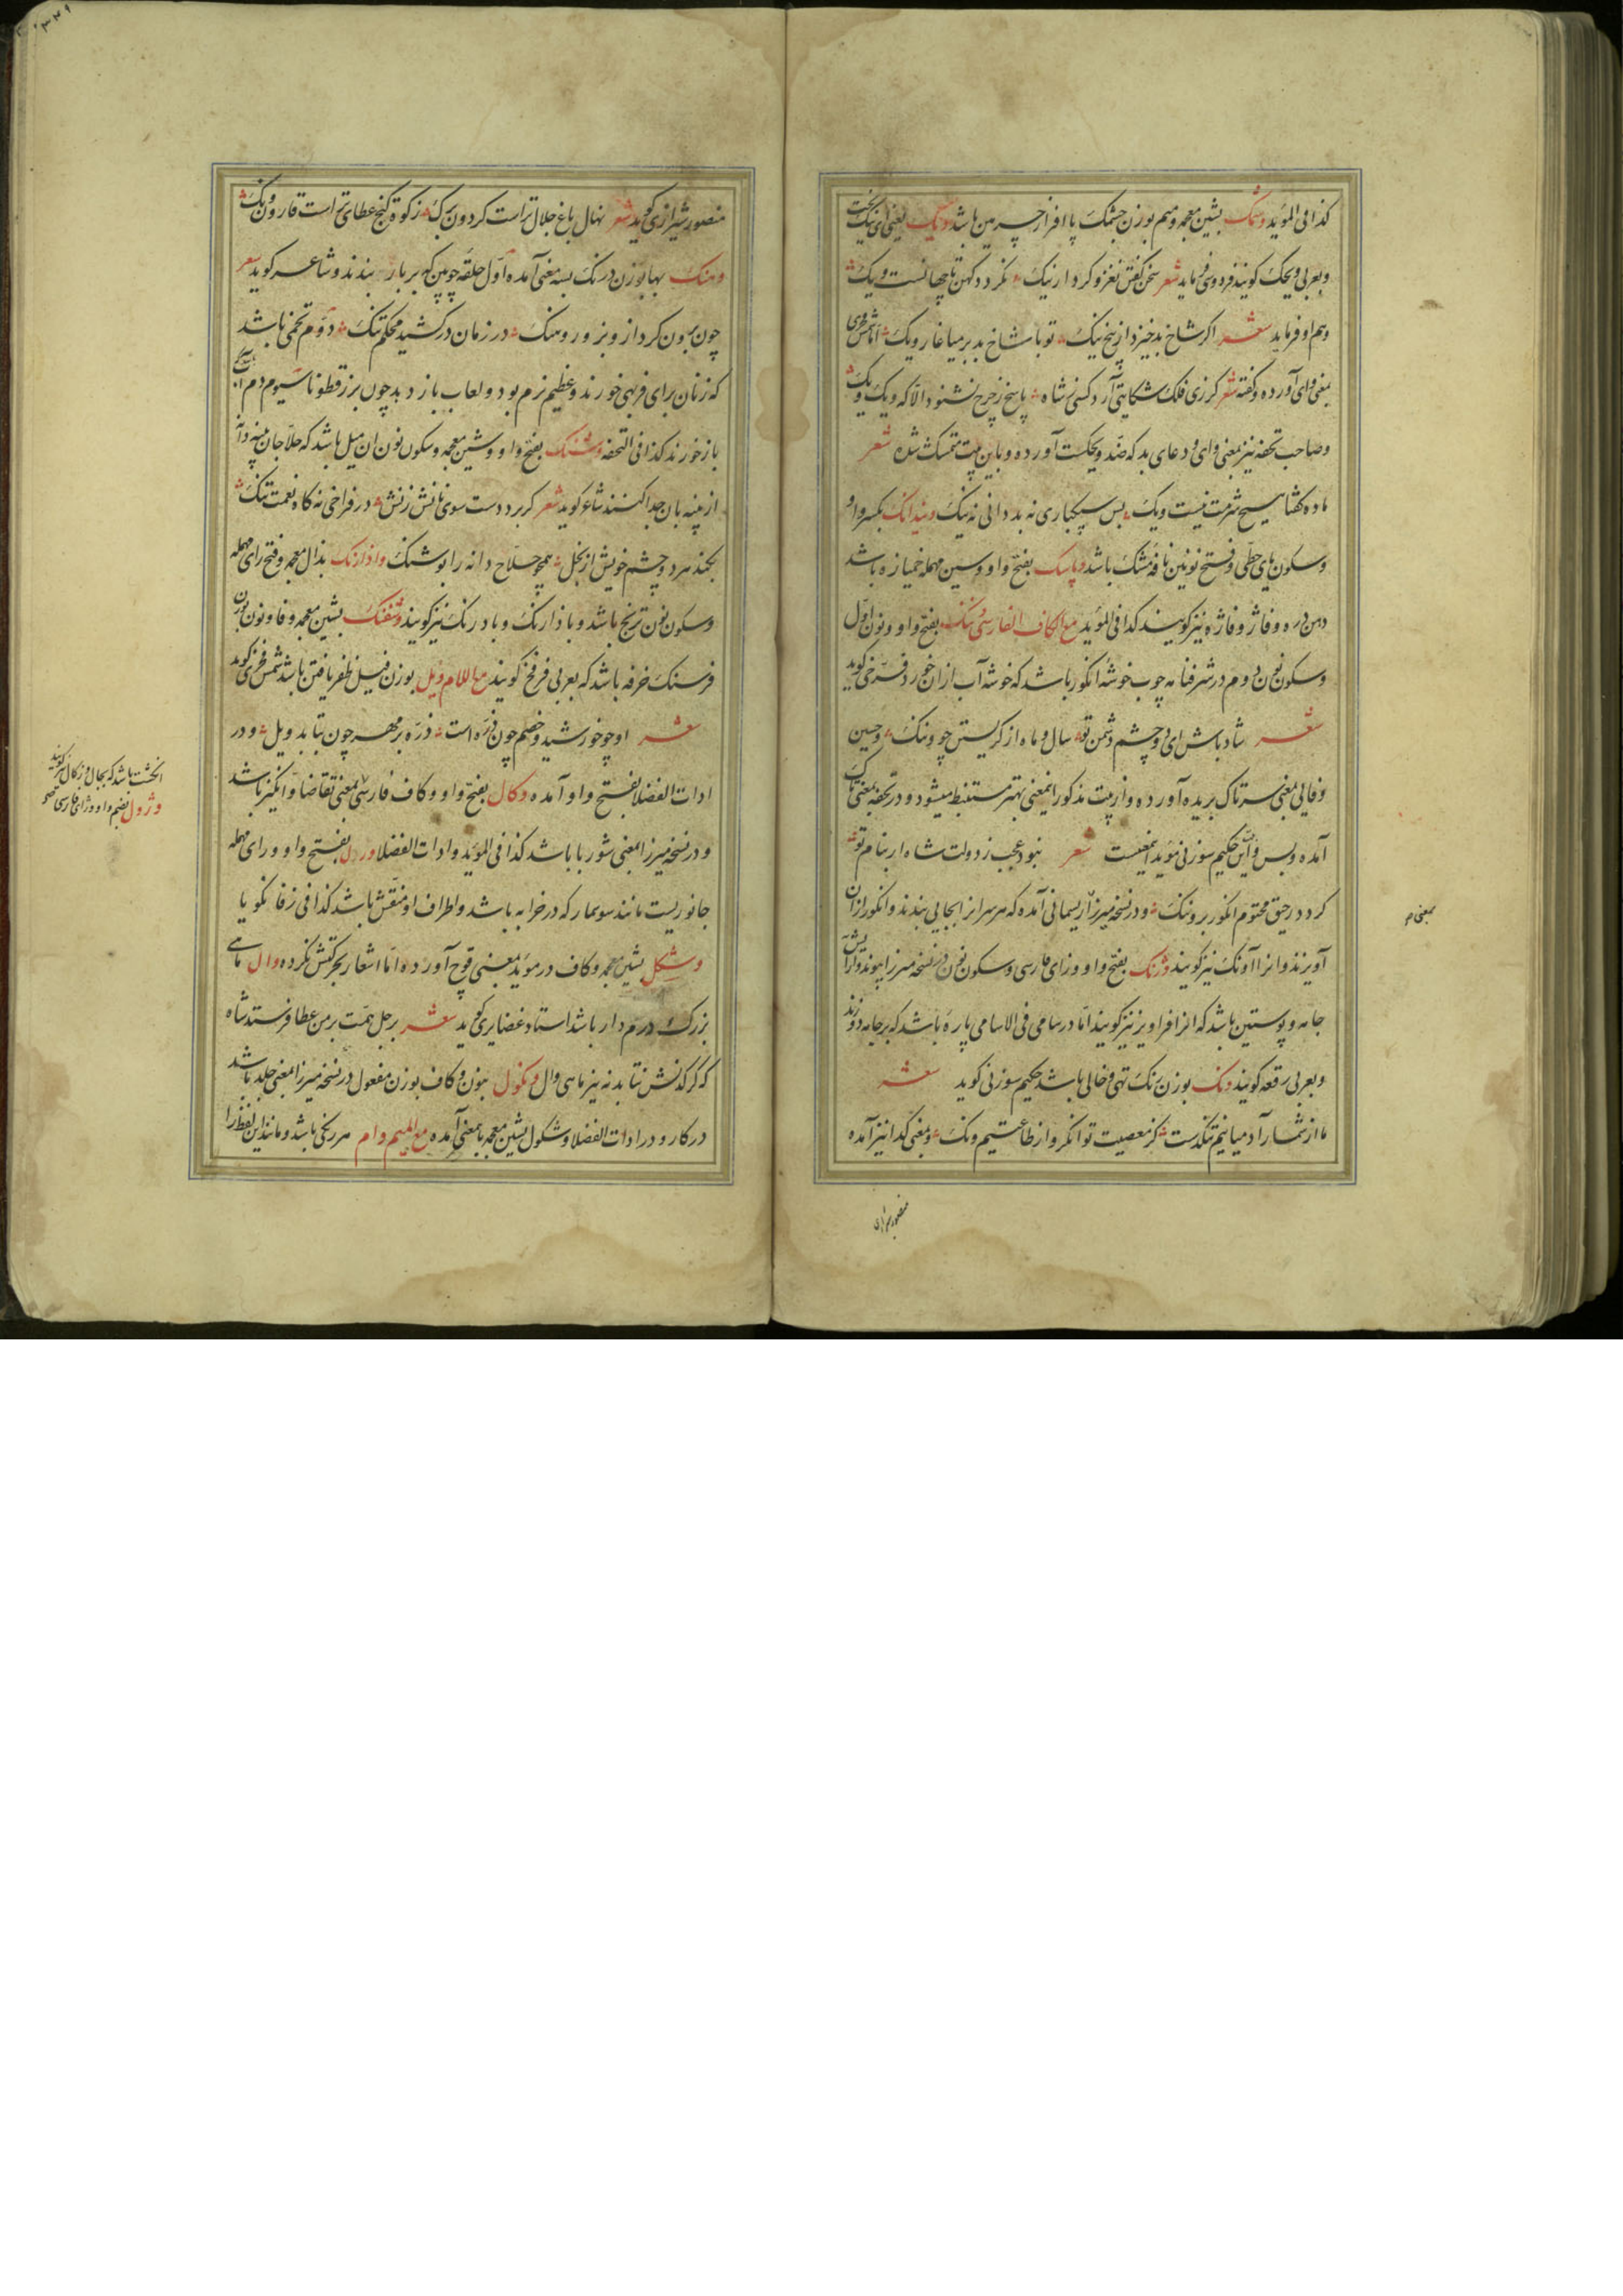 كذا فی المؤید وشمک بشین معجمه و میم بوزن چشمک پا افزار چرمین باشد ویک یعنی ای نیک بخت
و بعربی ویحک کویند فردوسی فرماید شعر سخن کفتن نغز و کردار نیک نکردد کهن تا جهانست ویک
و هم او فرماید شعر اکر شاخ بد خیزد از بیخ نیک تو با شاخ بد بر میاغار ویک اما شمس فخری
بمعنی وای آورده و کفته شعر کر زی فلک شکایتی آرد کسی ز شاه پاسخ ز چرخ نشنود الا که ویک ویک
و صاحب تحفه نیز بمعنی وای و دعای بد که ضد ویحکست آورده و باین بیت متمسک شده شعر
ماده کفتا هیچ شرمت نیست ویک بس سبکباری نه بد دانی نه نیک بکسر واو
و سکون یای حطی و فتح نونین نافه مشک باشد وپاسک بفتح واو و سین مهمله خمیازه باشد
دهن دره و فاژ و فاژه نیز کویند کذا فی المؤید مع الکاف الفارسی وننک بفتح واو و نون اول
و سکون نون دوم در شرفنامه چوب خوشه انکور باشد که خوشه آب از ان خورد فرخی کوید
شعر شاد باش ای دو چشم دشمن تو سال و ماه از کریستن چو وننک و حسین
وفایی بمعنی سر تاک بریده آورده و از بیت مذکور اینمعنی بهتر مستنبط میشود و در تحفه بمعنی تاک
آمده و بس و این حکیم سوزنی مؤید اینمعنیست شعر نبود عجب ز دولت شاه ار بنام تو
کردد رحیق مختوم انکور بر وننک و در نسخه میرزا ریسمانی آمده که هر سر انرا بجایی بندند و انکور از ان
آویزند و انرا آونک نیز کویند وژنک بفتح واو و زای فارسی و سکون نون در نسخه میرزا پیوند و آرایش
جامه و پوستین باشد که انرا فراویز نیز کویند اما در سامی فی الاسامی پاره باشد که بر جامه دوزند
و بعربی رقعه کویند ونک بوزن رنک تهی و خالی باشد حکیم سوزنی کوید شعر
ما از شمار آدمیانیم تنکدست کز معصیت توانکر و از طاعتیم ونک و بمعنی کدا نیز آمده
بمعنی
منصور شیرازی
منصور شیرازی کوید شعر نهال باغ جلال تراست کردون برک زکوة کنج عطای تراست قارون ونک
وهنک بها بوزن درنک بسه معنی آمده اول حلقه چوبین که بر بار بندند و شاعر کوید شعر
چون برون کرد از و بزور وهنک در زمان درکشید محکم تنک دوم تخمی باشد
که زنان برای فربهی خورند و عظیم نرم بود و لعاب باز دهد چون بزرقطونا سیوم دم آب
باز خورند کذا فی التحفه وشننک بفتح واو و شین معجمه و سکون نون ان میل باشد که حلاجان پنبه دانه
از پنبه بان جدا کنند شاعر کوید شعر کر برد دست سوی نانش زنش در فراخی نه کاه نعمت تنک
بکند هر دو چشم خویش از بخل همچو حلاج دانه را بوشنک واذارنک بذال معجمه و فتح رای مهمله
و سکون نون ترنج باشد و باذارنک و بادرنک نیز کویند وشفنک بشین معجمه و فا و نون بوزن
فرسنک خرفه باشد که بعربی فرفخ کویند مع اللام ویل بوزن فیل ظفر یافتن باشد شمس فخری کوید
شعر او چو خورشید و خصم چون ذره است ذره بر مهر چون بیابد ویل و در
ادات الفضلا بفتح واو آمده وکال بفتح واو و کاف فارسی بمعنی تقاضا و انکیز باشد
و در نسخه میرزا بمعنی شوربا باشد کذا فی المؤید و ادات الفضلا ورل بفتح واو و رای مهمله
جانوریست مانند سوسمار که در خرابه باشد و اطراف او منقش باشد کذا فی زفانکویا
وشکل بشین معجمه و کاف در مؤید بمعنی قوچ آورده اما اشعار بحرکتش نکرده وال ماهی
بزرک درم دار باشد استاد غضایری کوید شعر بر جل همت بر من عطا فرستد شاه
که کرکدنش نتابد نه نیز ماهی وال ونکول بنون و کاف بوزن مفعول در نسخه میرزا بمعنی جلد باشد
در کار و در ادات الفضلا وشکول بشین معجمه باین معنی آمده مع المیم وام هر رنکی باشد و مانند این لفظ را
انکشت باشد که بجال و زکال نیز کویند
وژول بضم واو و زای فارسی